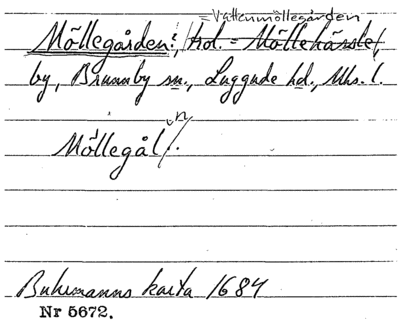 = Vattenmöllegården
Möllegården:, trol. = Möllehässle/,
by, Brunnby sn., Luggude hd., Mhs. l.
n
Möllegål/.
Buhrmanns karta 1684
Nr 5672.